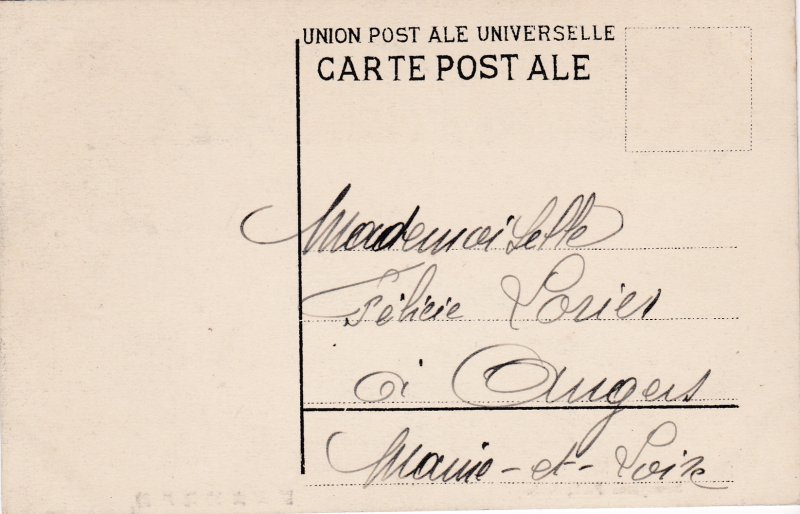 UNION POSTALE UNIVERSELLE
CARTE POSTALE
Mademoiselle
Félicie Lorier
à Angers
Maine-et-Loire